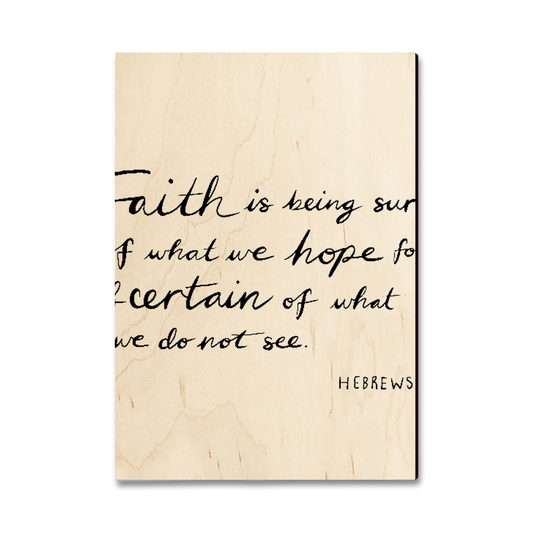 Faith is being sur
of what we hope fo
& certain of what
we do not see.
HEBREWS